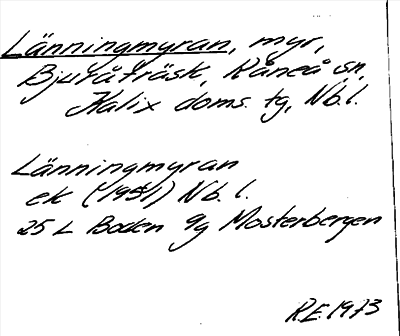 Länningmyran, myr,
Bjuråträsk, Råneå sn,
Kalix doms. tg, Nb.l.
Länningmyran
ek (1951) Nb. l.
25 L Boden 9g Mosterbergen
R.E. 1973